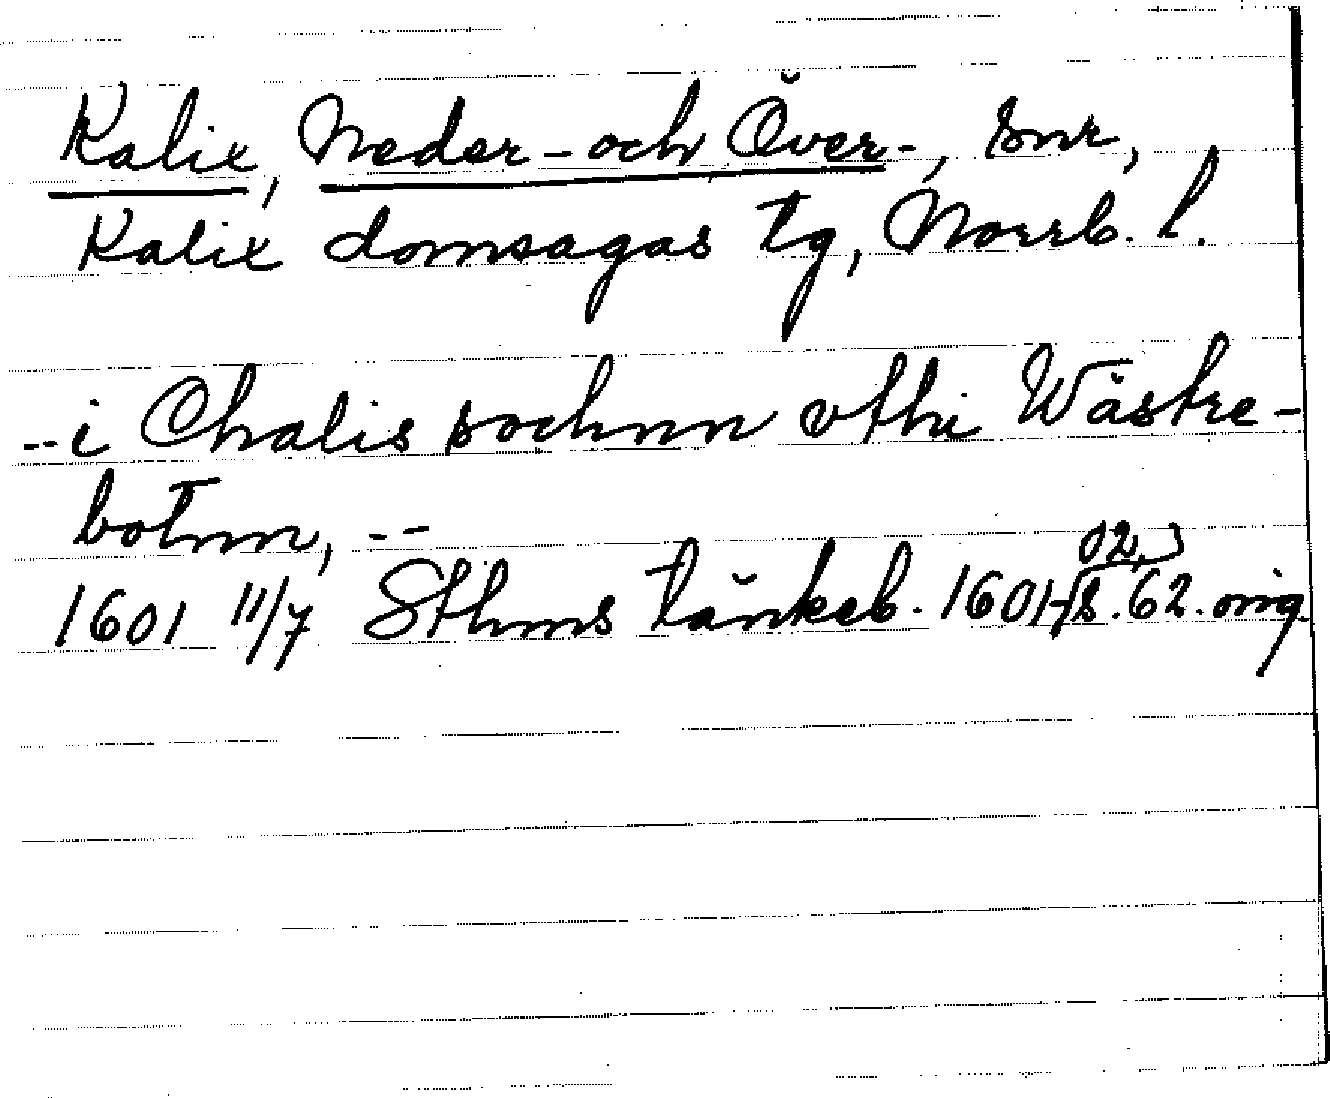 Kalix, Neder- och Över-, snr,
Kalix domsagas tg, Norrb. l.
-- i Chalis sochnn vthi Wästre-
botnn, --
1601 11/7 Sthms tänkeb. 1601-02, s. 62. orig.